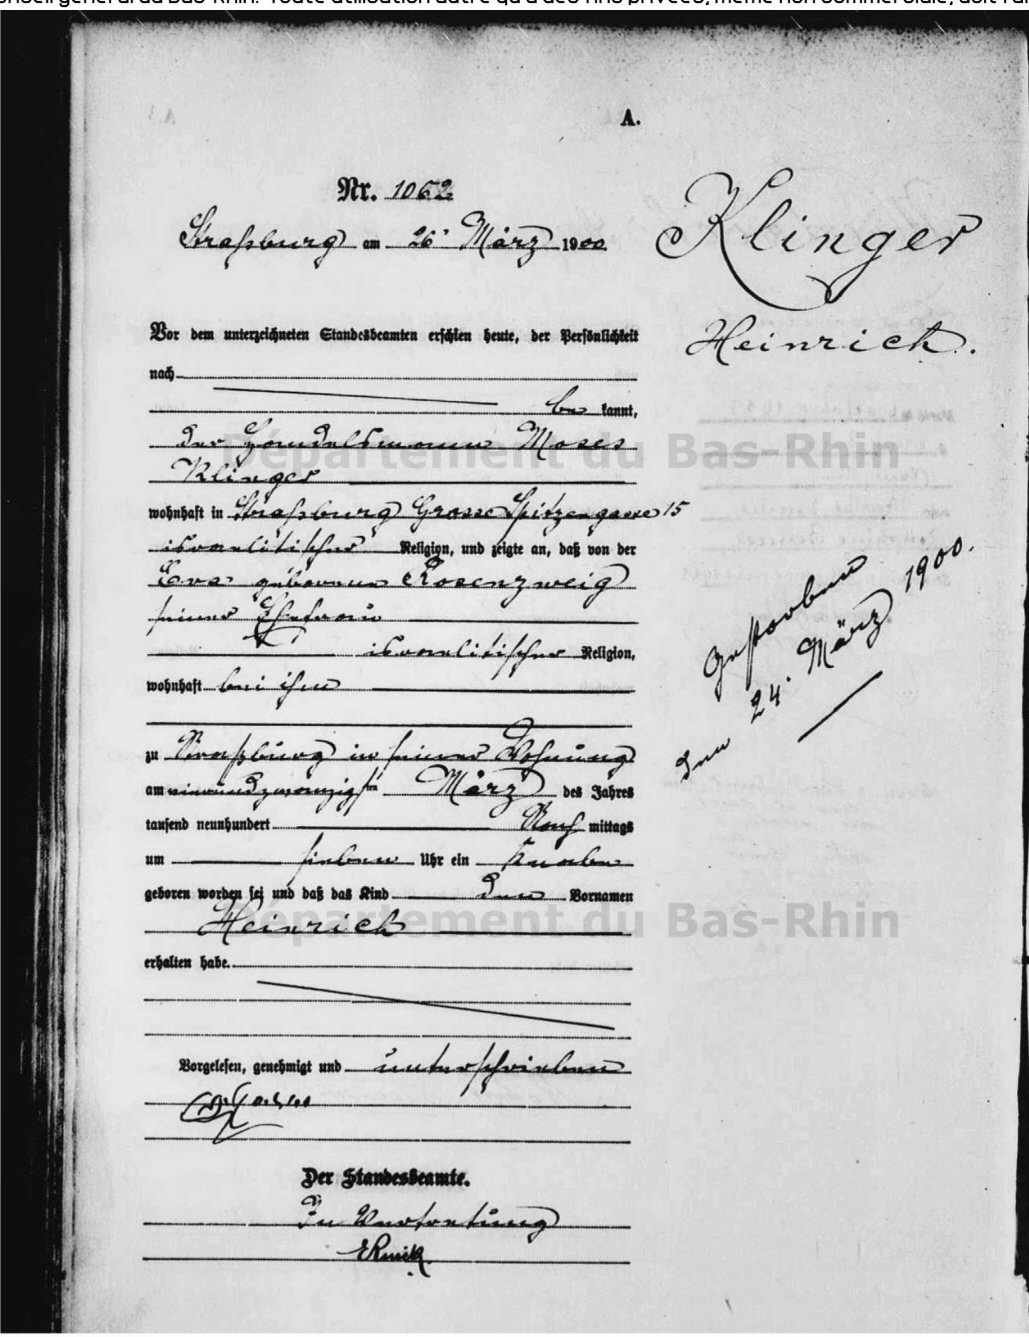 A.
Nr. 1062
Straßburg am 26. März 1900
Klinger
Heinrich.
Vor dem unterzeichneten Standesbeamten erschien heute, der Persönlichkeit
nach
be kannt,
der Handelsmann Moses
Klinger
wohnhaft in Straßburg Grosse Spitzengasse 15
israelitischer Religion, und zeigte an, daß von der
Eva geborenen Rosenzweig
seiner Ehefrau
israelitischer Religion,
wohnhaft bei ihm
zu Straßburg in seiner Wohnung
am einundzwanzigsten März des Jahres
tausend neunhundert Nach mittags
um sieben Uhr ein Knabe
geboren worden sei und daß das Kind den Vornamen
Heinrich
erhalten habe.
Vorgelesen, genehmigt und unterschrieben
Der Standesbeamte.
In Vertretung
Gestorben
den 24. März 1900.
Département du Bas-Rhin
Département du Bas-Rhin